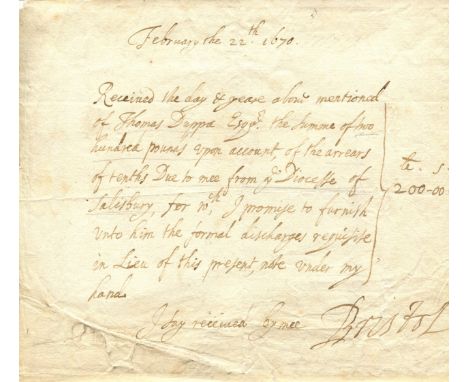 February the 22th. 1670.
Received the day & yeare above mentioned
of Thomas Duppa Esqr. the summe of two
hundred pounds upon account, of the arrears
of tenths Due to mee from ye Diocesse of
Salisbury, for wch I promise to furnish
unto him the formal discharges requisite
in Lieu of this present note under my
hand.
li. s
200-00
I say received by mee Bristol